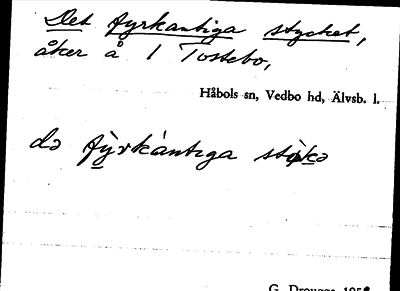 Det fyrkantiga stycket,
åker å 1 Tostebo,
Håbols sn, Vedbo hd, Älvsb. l.
də fyrkantiga
G. Drougge